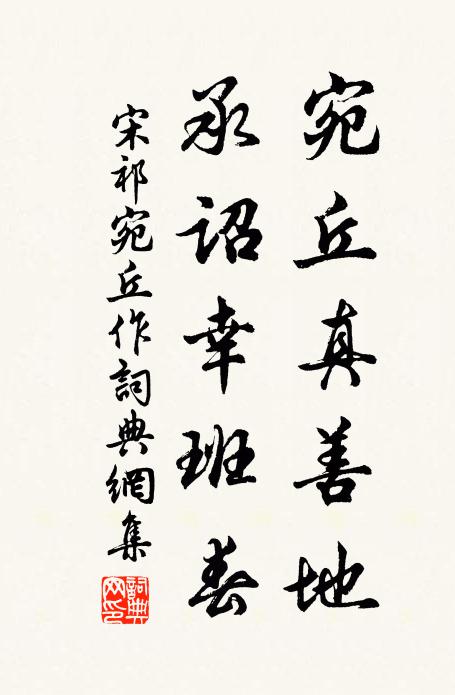 宛丘真善地
承詔幸班春
宋祁宛丘作詞典網集
詞典网印